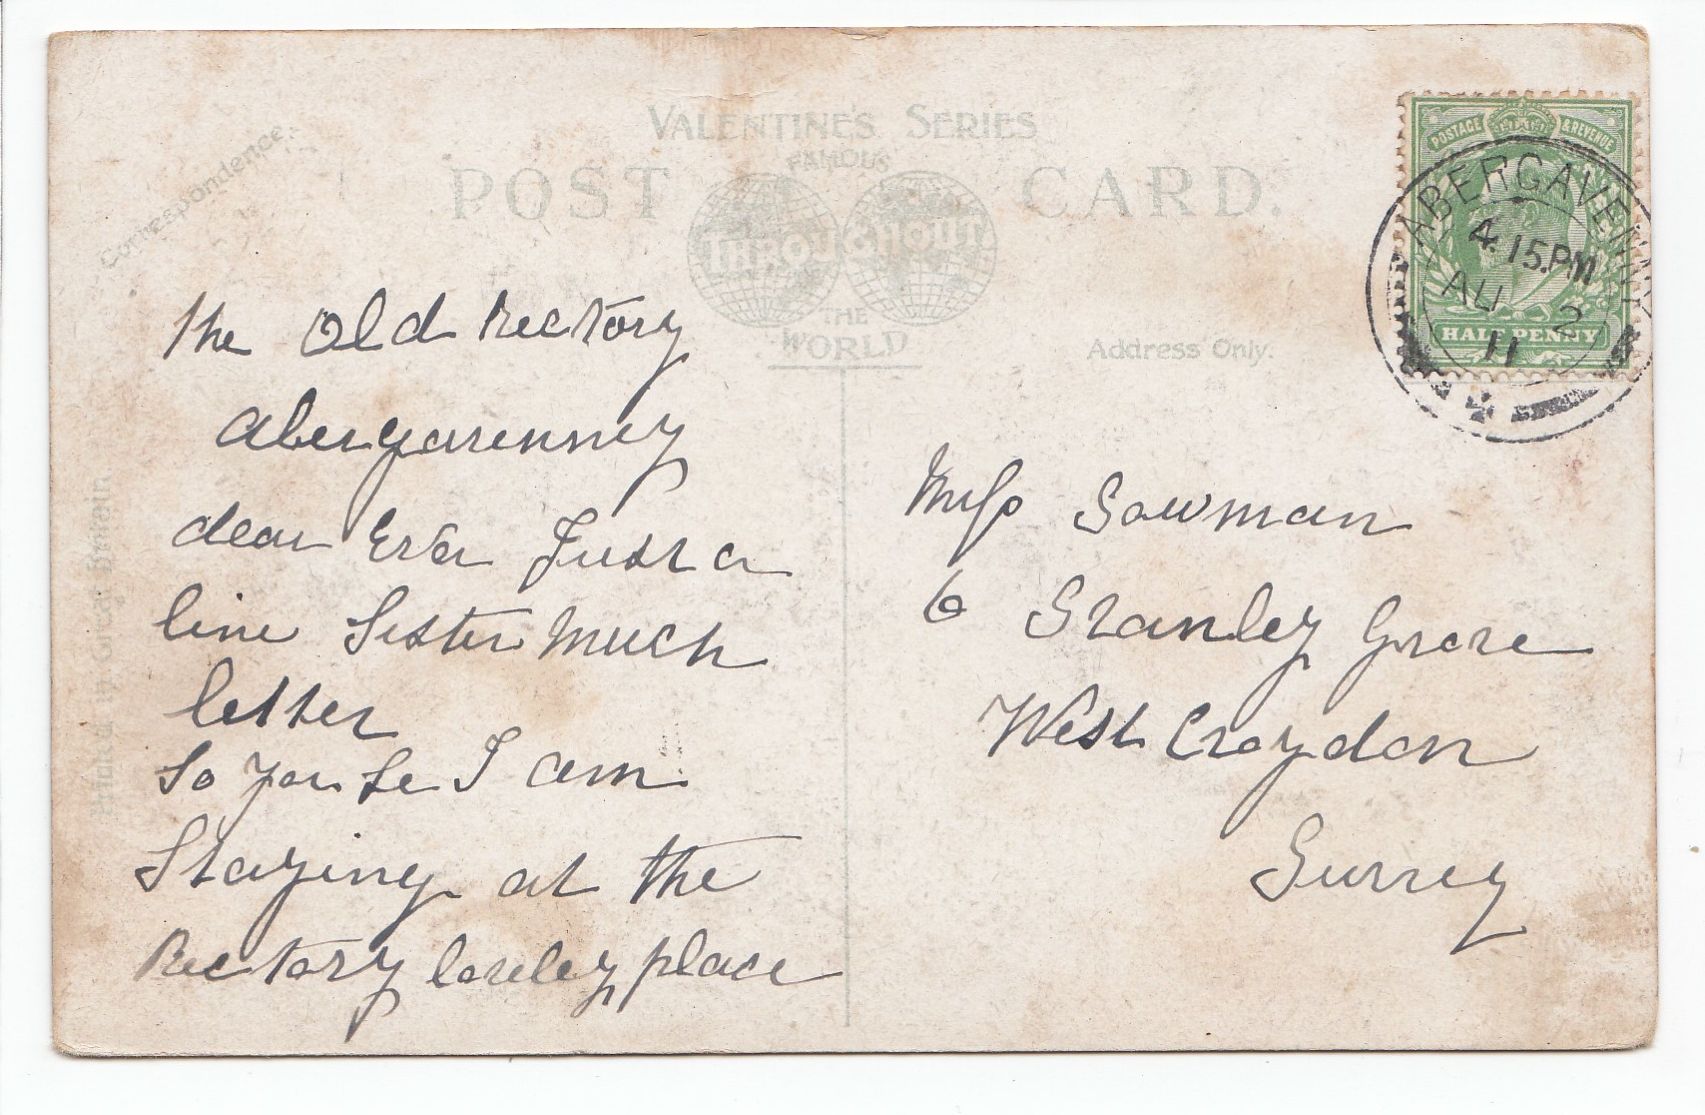 VALENTINE'S SERIES
FAMOUS
POST CARD.
THROUGHOUT
THE
WORLD
Correspondence.
Address Only.
Printed in Great Britain
POSTAGE & REVENUE
HALF PENNY
ABERGAVENNY
4.15.PM
AU 2
11
the Old Rectory
Abergavenney
dear Eva Just a
line Sister Much
letter
So you se I am
Staying at the
Rectory loveley place
Miss Sowman
6 Stanley Grove
West Croydon
Surrey